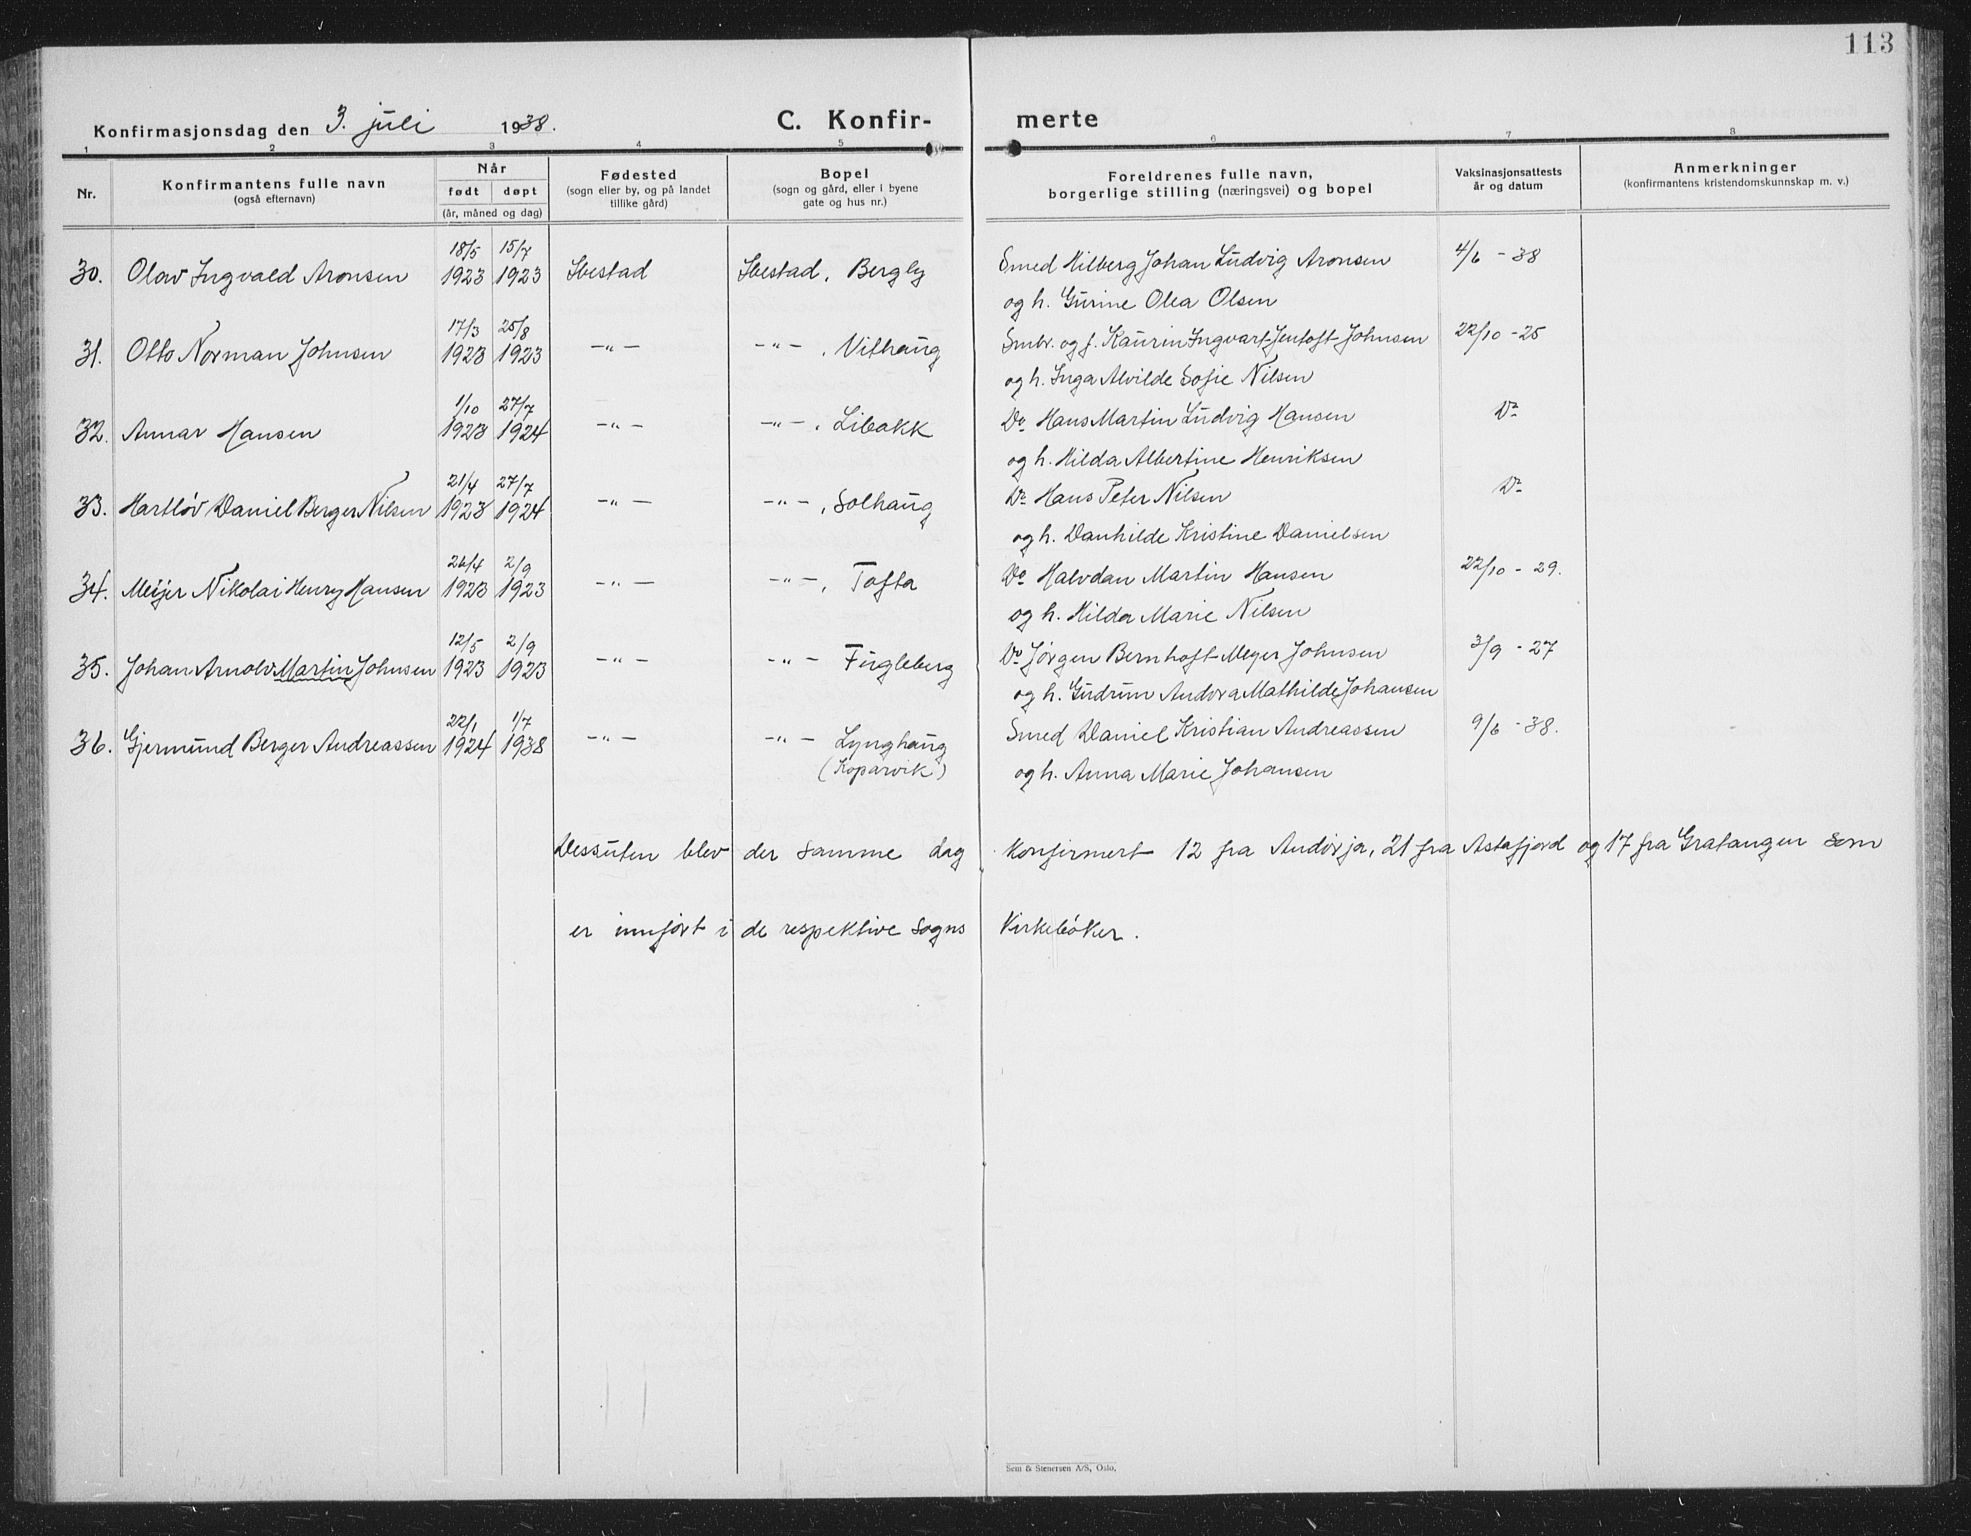 113
Konfirmasjonsdag den 3. juli 1938. C. Konfir- merte
1 2 3 4 5 6 7 8
Nr. Konfirmantens fulle navn (også efternavn) Når født døpt (år, måned og dag) Fødested (sogn eller by, og på landet tillike gård) Bopel (sogn og gård, eller i byene gate og hus nr.) Foreldrenes fulle navn, borgerlige stilling (næringsvei) og bopel Vaksinasjonsattests år og datum Anmerkninger (konfirmantens kristendomskunnskap m. v.)
18/5 15/7
30. Olav Ingvald Aronsen 1923 1923 Ibestad Ibestad, Bergly Smed Hilberg Johan Ludvig Aronsen 4/6 - 38
og h. Gurine Olea Olsen
17/3 25/8
31. Otto Norman Johnsen 1923 1923 -"- -"-, Vithaug Smbr. og f. Kaurin Ingvart Jentoft Johnsen 22/10 - 25
og h. Inga Alvilde Sofie Nilsen
1/10 27/7
32. Annar Hansen 1923 1924 -"- -"-, Libakk Do Hans Martin Ludvig Hansen Do
og h. Hilda Albertine Henriksen
21/4 27/7
33. Hartløv Daniel Berger Nilsen 1923 1924 -"- -"-, Solhaug Do Hans Peter Nilsen Do
og h. Danhilde Kristine Danielsen
26/4 2/9
34. Meijer Nikolai Henry Hansen 1923 1923 -"- -"-, Tofta Do Halvdan Martin Hansen 22/10 - 29.
og h. Hilda Marie Nilsen
12/5 2/9
35. Johan Arnolv Martin Johnsen 1923 1923 -"- -"- Fugleberg Do Jørgen Bernhoft Meyer Johnsen 3/9 - 27
og h. Gudrun Andora Mathilde Johansen
22/1 1/7
36. Gjermund Berger Andreassen 1924 1938 -"- -"- Lynghaug Smed Daniel Kristian Andreassen 9/6 - 38.
(Koparvik) og h. Anna Marie Johansen
Dessuten blev der samme dag konfirmert 12 fra Andørja, 21 fra Astafjord og 17 fra Gratangen som
er innført i de respektive sogns kirkebøker.
Sem & Stenersen A/S, Oslo.